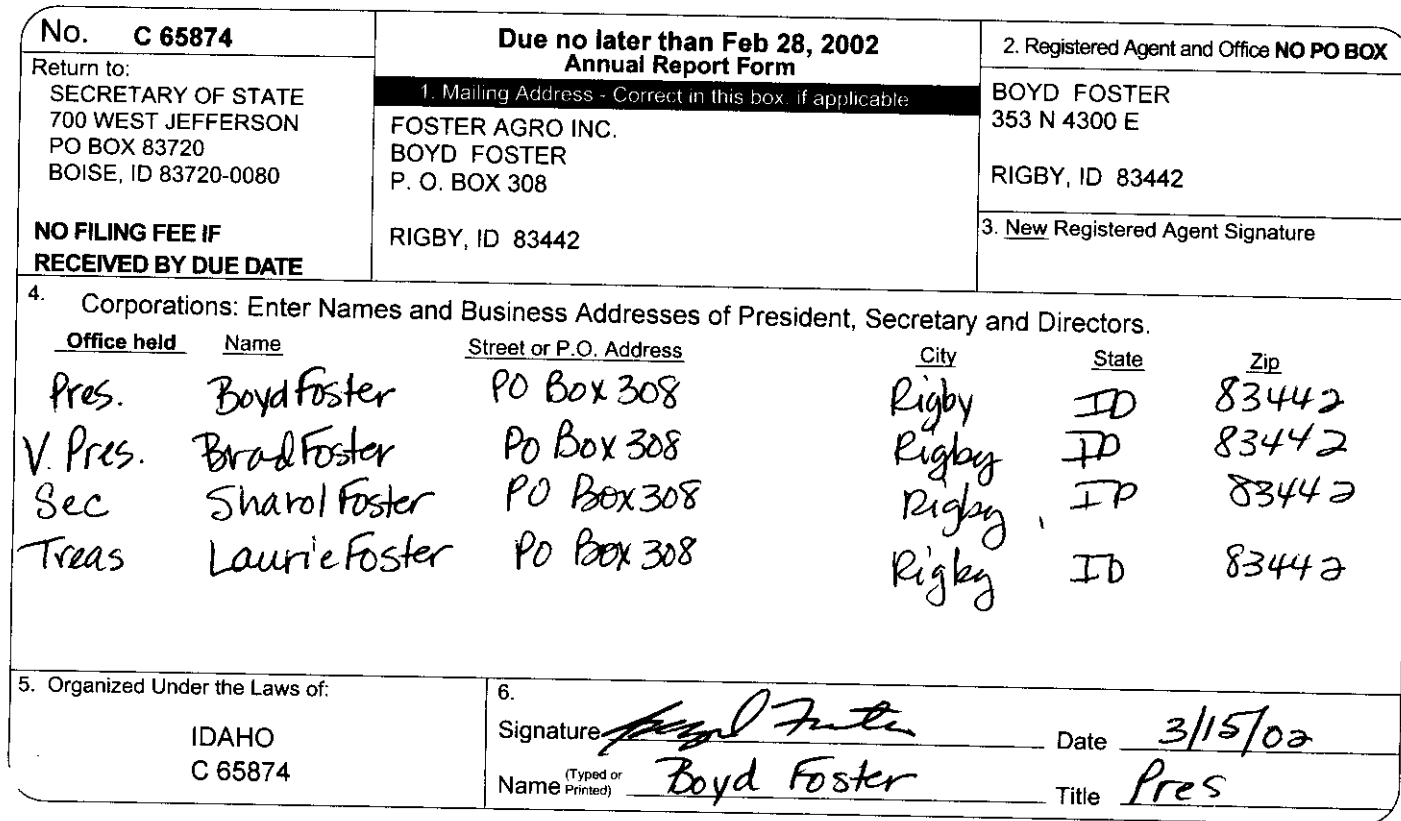 No. C 65874
Return to:
SECRETARY OF STATE
700 WEST JEFFERSON
PO BOX 83720
BOISE, ID 83720-0080
NO FILING FEE IF
RECEIVED BY DUE DATE
Due no later than Feb 28, 2002
Annual Report Form
1. Mailing Address - Correct in this box, if applicable
FOSTER AGRO INC.
BOYD FOSTER
P. O. BOX 308
RIGBY, ID 83442
2. Registered Agent and Office NO PO BOX
BOYD FOSTER
353 N 4300 E
RIGBY, ID 83442
3. New Registered Agent Signature
4. Corporations: Enter Names and Business Addresses of President, Secretary and Directors.
Office held Name Street or P.O. Address City State Zip
Pres. Boyd Foster PO Box 308 Rigby ID 83442
V. Pres. Brad Foster Po Box 308 Rigby ID 83442
Sec Sharol Foster PO Box 308 Rigby, ID 83442
Treas Laurie Foster PO Box 308 Rigby ID 83442
5. Organized Under the Laws of:
IDAHO
C 65874
6.
Signature Boyd Foster Date 3/15/02
Name (Typed or Printed) Boyd Foster Title Pres